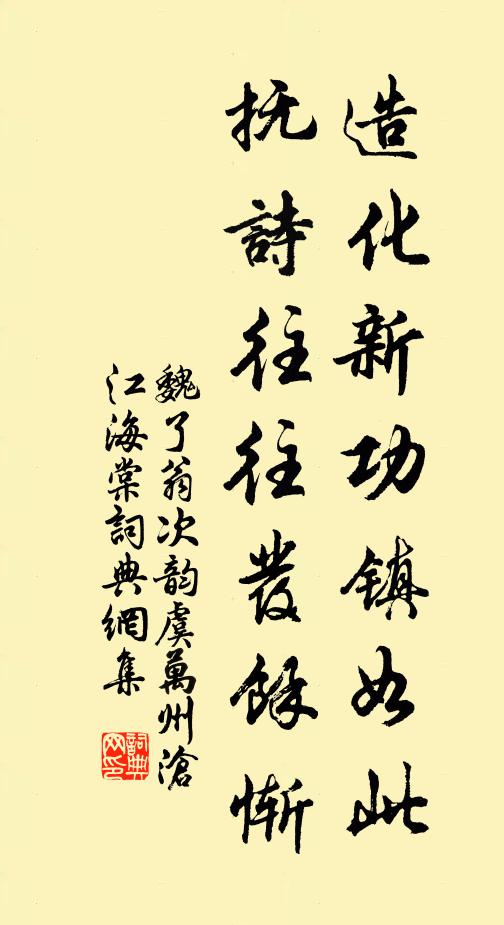 造化新功镇如此
抚詩往往發餘慚
魏了翁次韵虞萬州滄
江海棠詞典網集
詞典
网印